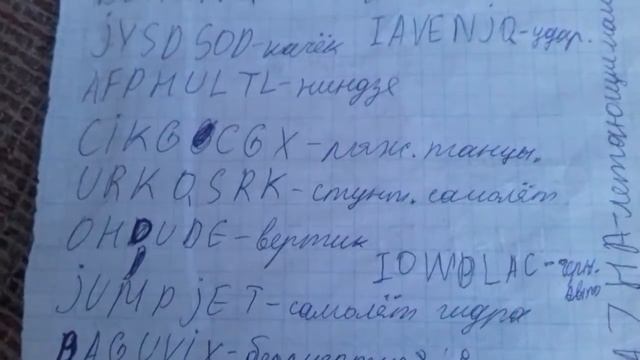 jYSDSOD-качёк
IAVENjQ-удар.
AFPHULTL-ниндзя
CiKGCGX-пляж. танцы.
URKQSRK-стунт. самолёт
OHDUDE-вертик
IOWDLAC-черн. авто
jUMPjET-самолёт гидра
BAGUVIX-
А7НА-летающи